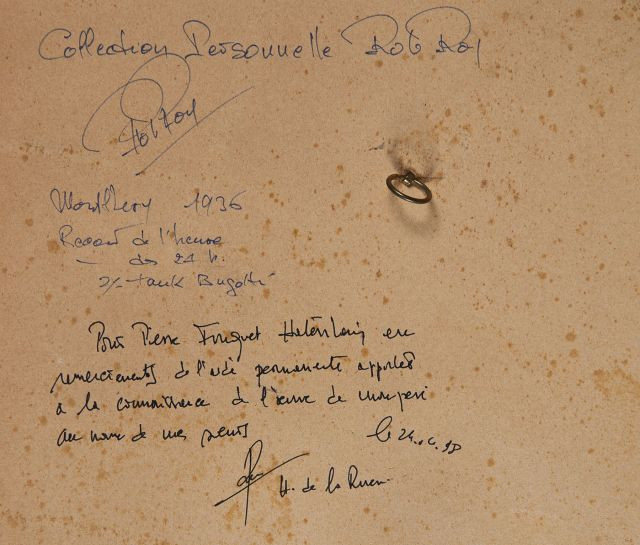 Collection Personnelle Rob Roy
Rob Roy
Montlhery 1936
Record de l'heure
— des 24 h.
s/ tank Bugatti
Pour Pierre Fouquet en
remerciements de l'aide permanente apportée
à la connaissance de l'œuvre de mon père
au nom de mes sœurs le 24.
H. de la